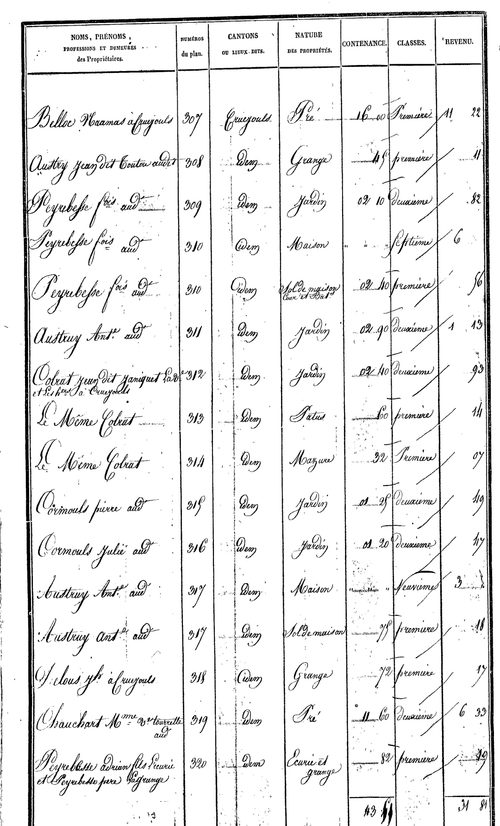 NOMS, PRÉNOMS, PROFESSIONS ET DEMEURES des Propriétaires. NUMÉROS du plan. CANTONS OU LIEUX-DITS. NATURE DES PROPRIÉTÉS. CONTENANCE. CLASSES. REVENU.
Belloc Mramas à Cruejouls 307 Cruejouls Pré 16 00 Première 11 22
Austry jean dit Toutou aud.t 308 Idem Grange 45 première 11
Peyrebesse fois aud 309 Idem Jardin 02 10 deuxième 82
Peyrebesse fois aud 310 Idem Maison " " Septième 6
Peyrebesse fois aud 310 Idem Sol de maison 02 40 première 96
Cour et Bat
Austruy Ant.e aud 311 Idem Jardin 02 90 deuxième 1 13
Colrat jean dit janiquet La Ve 312 Idem Jardin 02 40 deuxième 93
et Les hers à Cruejouls
Le Même Colrat 313 Idem Patus 60 première 14
Le Même Colrat 314 Idem Mazure 32 Première 07
Cormouls pierre aud 315 Idem Jardin 01 25 Deuxième 49
Cormouls julie aud 316 Idem Jardin 01 20 Deuxième 47
Austruy Ant.e aud 317 Idem Maison " Neuvième 3
Austruy ant.e aud 317 Idem Sol de maison 75 première 18
à Cruejouls 318 Idem Grange 72 première 17
Chauchart Mme Ve tourrette 319 Idem Pré 11 60 deuxième 6 33
aud
Peyrebesse adrian fils Ecurie 320 Idem Ecurie et 82 première
et Peyrebesse pere Lagrange grange
43 31 81